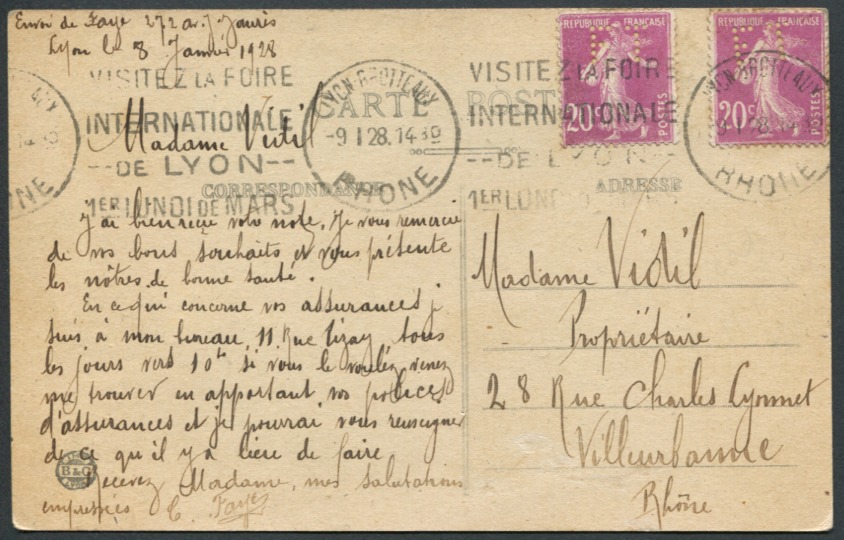 Envoi de Faye 272 av. J Jaurès
Lyon le 8 Janvier 1928
VISITEZ LA FOIRE
INTERNATIONALE
--DE LYON--
1ER LUNDI DE MARS
LYON-BROTTEAUX
-9 1 28. 14 30
RHONE
CARTE POSTALE
CORRESPONDANCE
ADRESSE
REPUBLIQUE FRANÇAISE
20c POSTES
REPUBLIQUE FRANÇAISE
20c POSTES
VISITEZ LA FOIRE
INTERNATIONALE
--DE LYON--
1ER LUNDI
LYON-BROTTEAUX
RHONE
Madame Vidil
J'ai bien reçu votre note. Je vous remercie
de vos bons souhaits et vous présente
les nôtres de bonne santé.
En ce qui concerne vos assurances j
suis à mon bureau, 11 Rue Tizay tous
les jours vers 10h si vous le voulez venez
me trouver en apportant vos polices
d'assurances et je pourrai vous renseigner
de ce qu'il y a lieu de faire
Recevez Madame, mes salutations
empressées C. Faye
B & G
Madame Vidil
Propriétaire
28 Rue Charles Lyonnet
Villeurbanne
Rhône